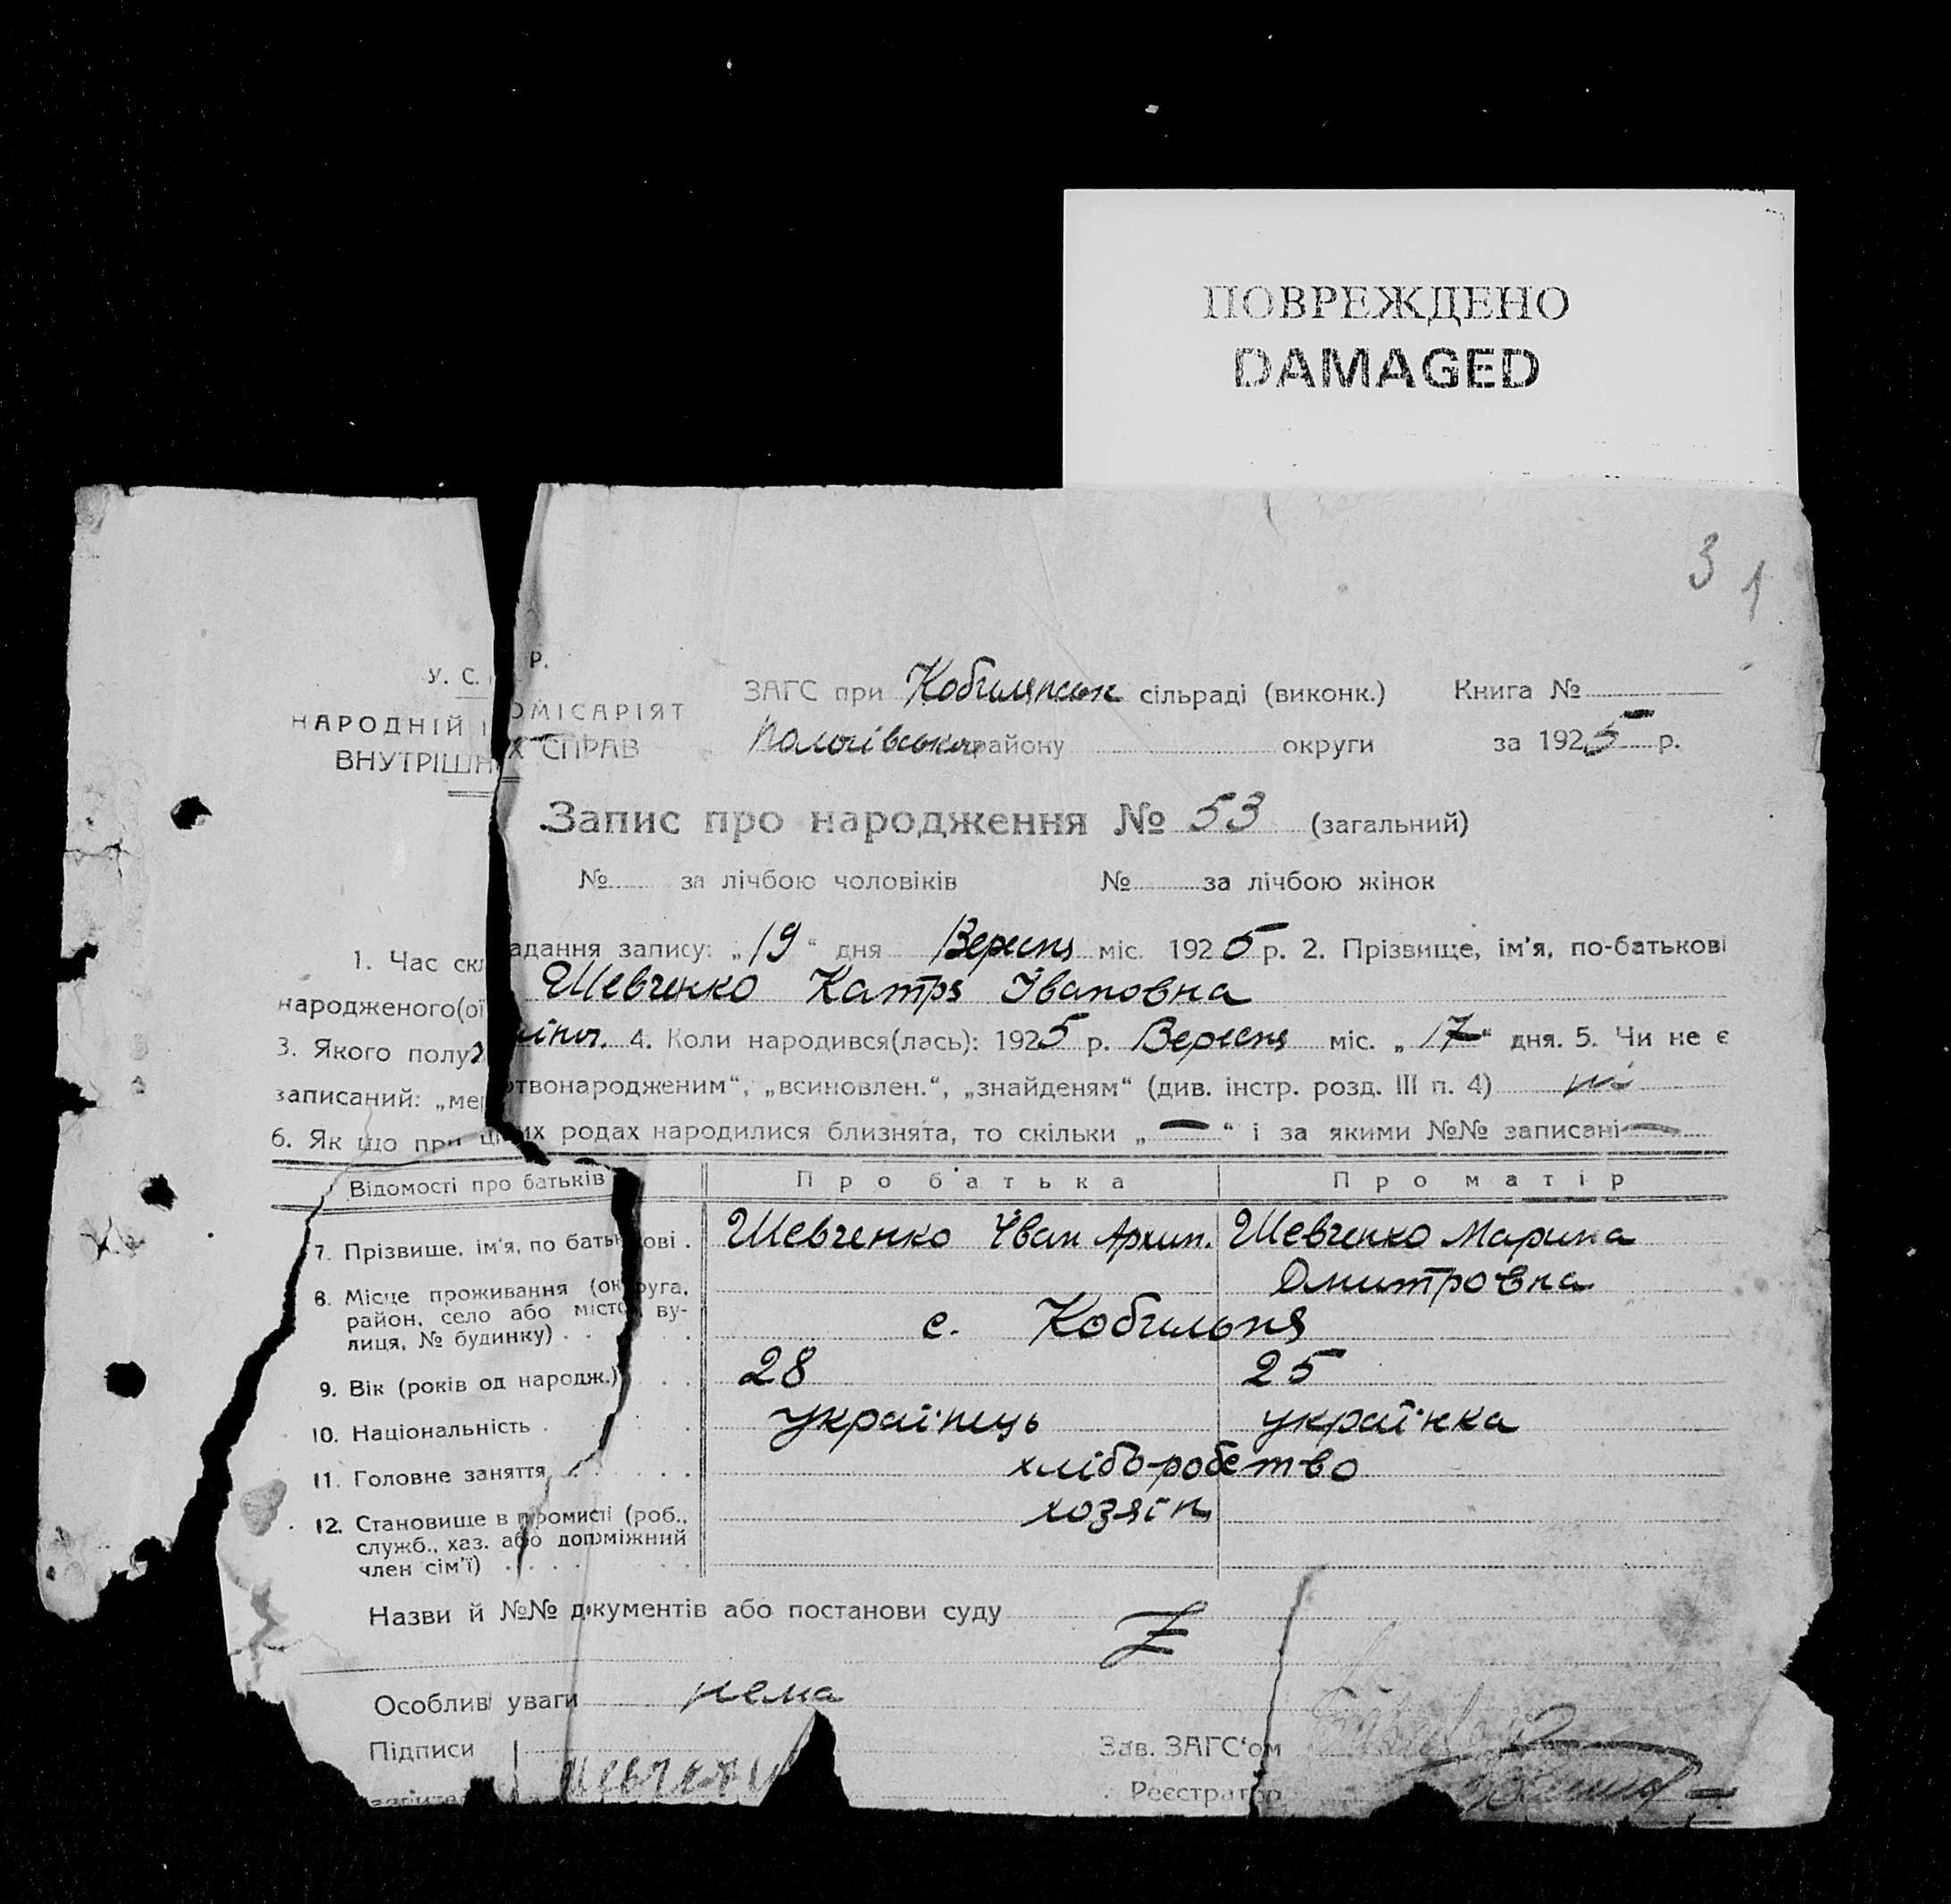 ПОВРЕЖДЕНО
DAMAGED
3 1
У. С. Р.
НАРОДНІЙ ОМІСАРІЯТ
ВНУТРІШН Х СПРАВ
ЗАГС при сільраді (виконк.) Книга №
району округи за 1925 р.
Запис про народження № 53 (загальний)
№ за лічбою чоловіків № за лічбою жінок
1. Час скл адання запису: „19“ дня Вересня міс. 1925 р. 2. Прізвище, ім'я, по-батькові
народженого(ої Шевченко Катря Івановна
3. Якого полу 4. Коли народився(лась): 1925 р. Вересня міс. „17“ дня. 5. Чи не є
записаний: „мер твонародженим“, „всиновлен.“, „знайденям“ (див. інстр. розд. III п. 4) ні
6. Як що при цих родах народилися близнята, то скільки „—“ і за якими №№ записані —
Відомості про батьків Про батька Про матір
7. Прізвише, ім'я, по батькові . Шевченко Іван Архип. Шевченко Марина
Дмитровна
8. Місце проживання (округа, район, село або місто, вулиця, № будинку) . . с. Кобильня
9. Вік (років од народж.) . . 28 25
10. Національність . . українець українка
11. Головне заняття . . . . . хлібо-робство
12. Становище в промислі (роб., хозяїн
служб., хаз. або допоміжний
член сім'ї) . . . . .
Назви й №№ документів або постанови суду
Особливі уваги нема
Підписи Зав. ЗАГС'ом
Шевченк
Реєстратор